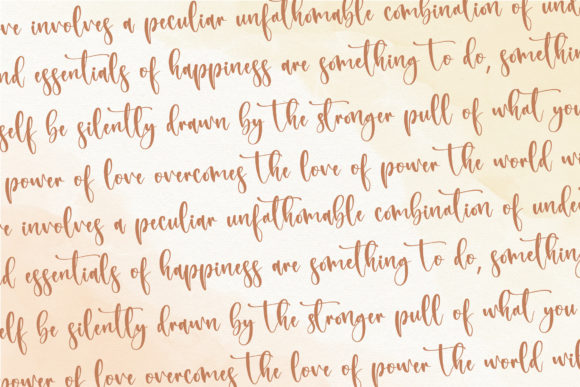 ve involves a peculiar unfathomable combination of und
nd essentials of happiness are something to do, somethin
self be silently drawn by the stronger pull of what you
power of love overcomes the love of power the world wi
e involves a peculiar unfathomable combination of unde
d essentials of happiness are something to do, something
elf be silently drawn by the stronger pull of what you
power of love overcomes the love of power the world wil